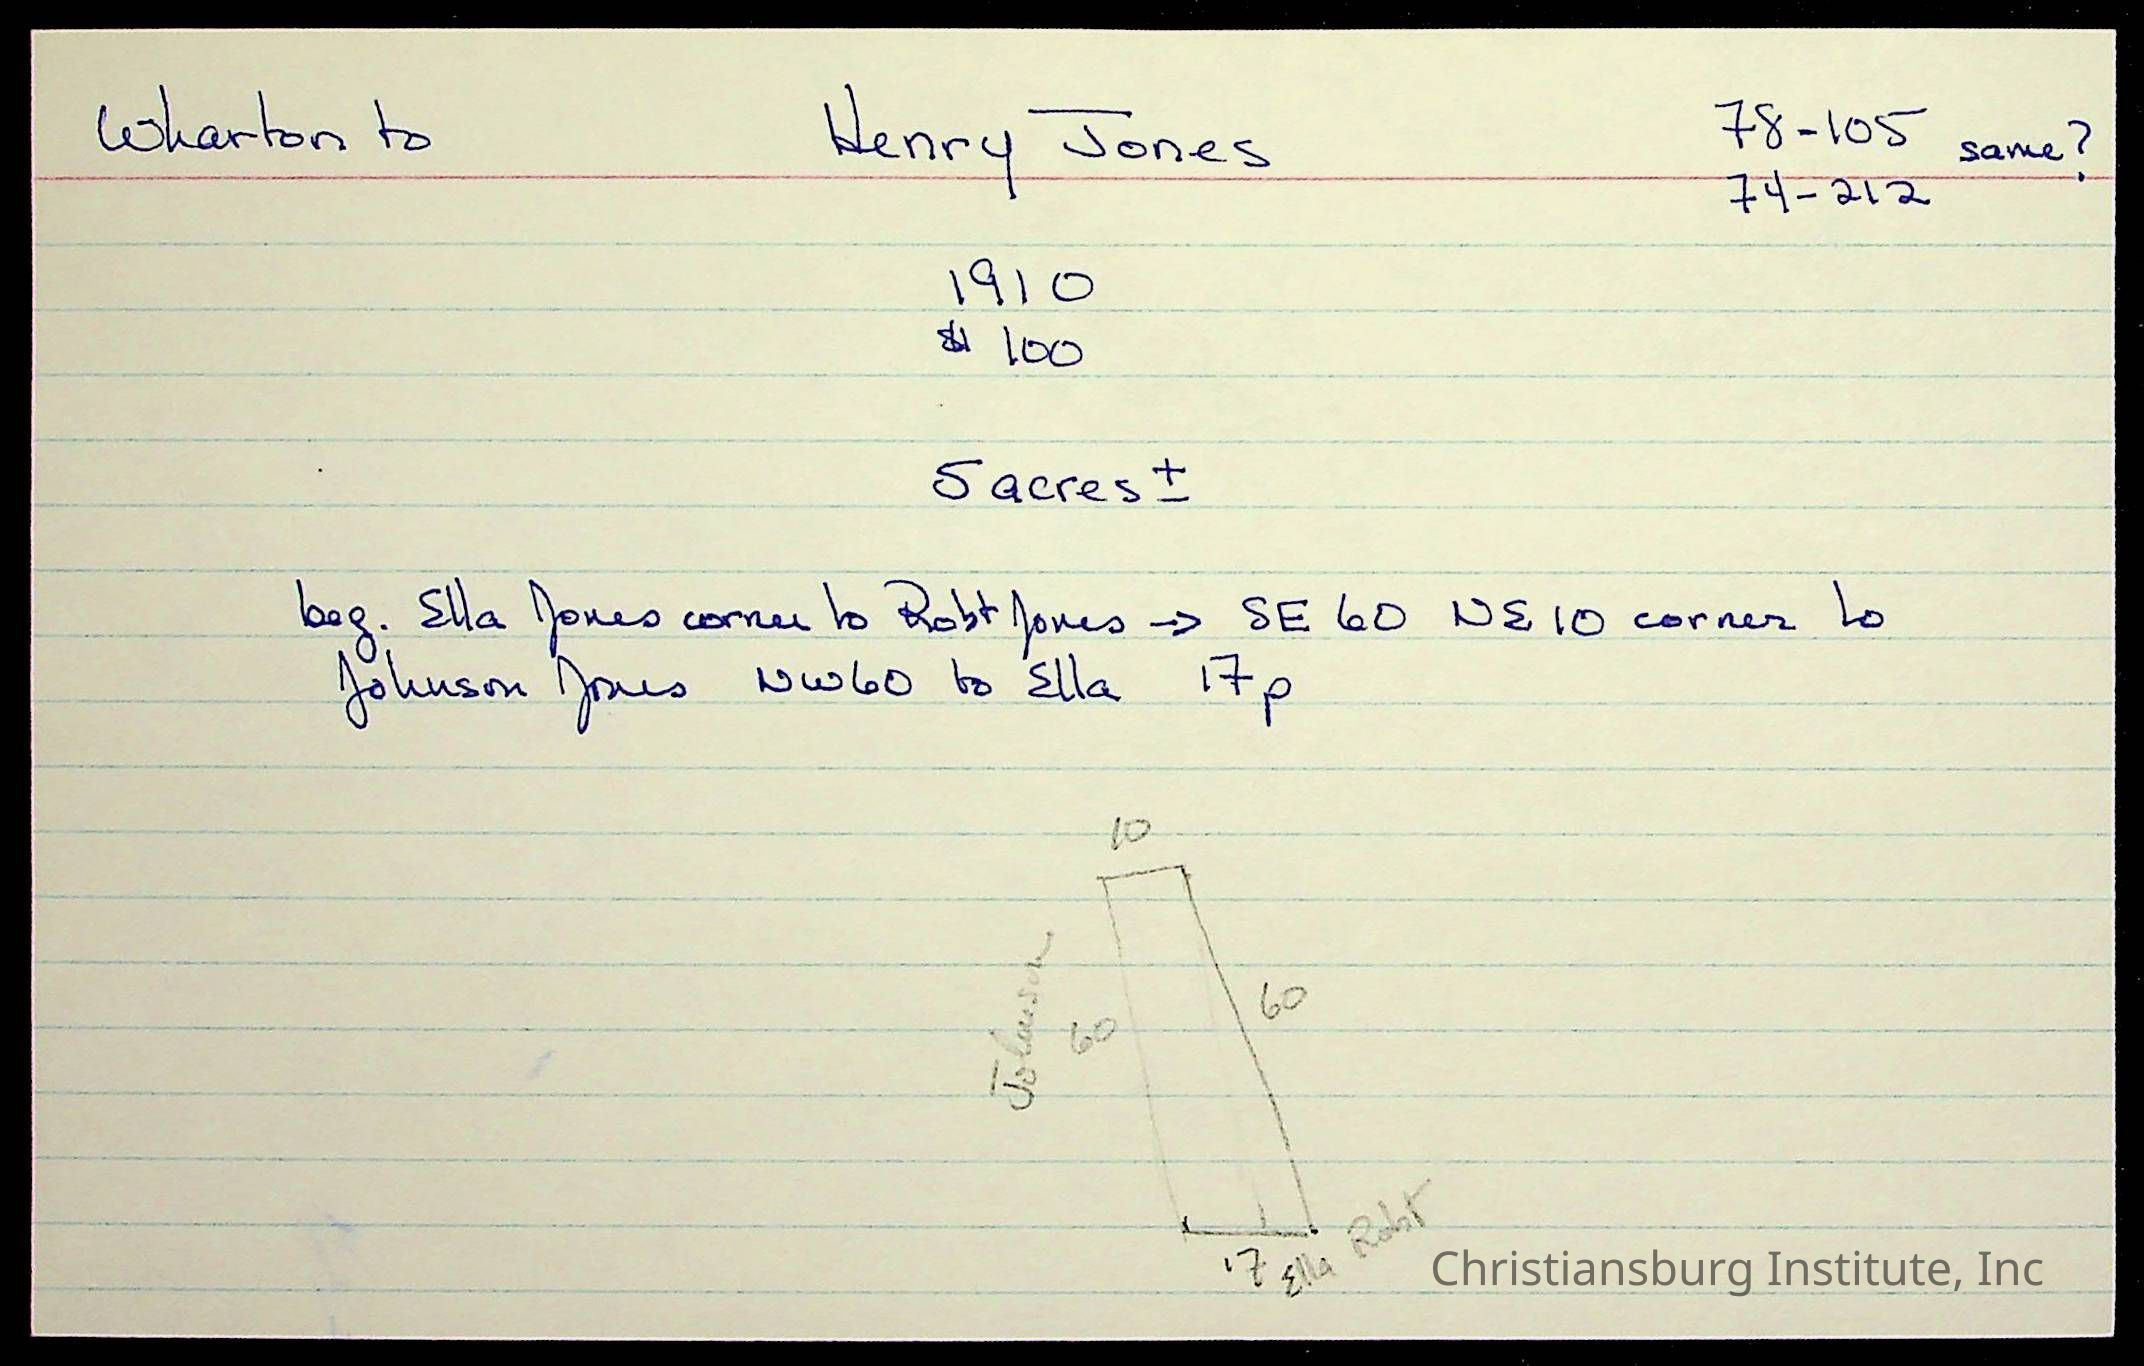 Wharton to Henry Jones 78-105 same?
74-212
1910
$ 100
5 acres ±
beg. Ella Jones corner to Robt Jones → SE 60 NE 10 corner to
Johnson Jones NW60 to Ella 17p
10
60
Johnson
60
17 Ella Robt
Christiansburg Institute, Inc